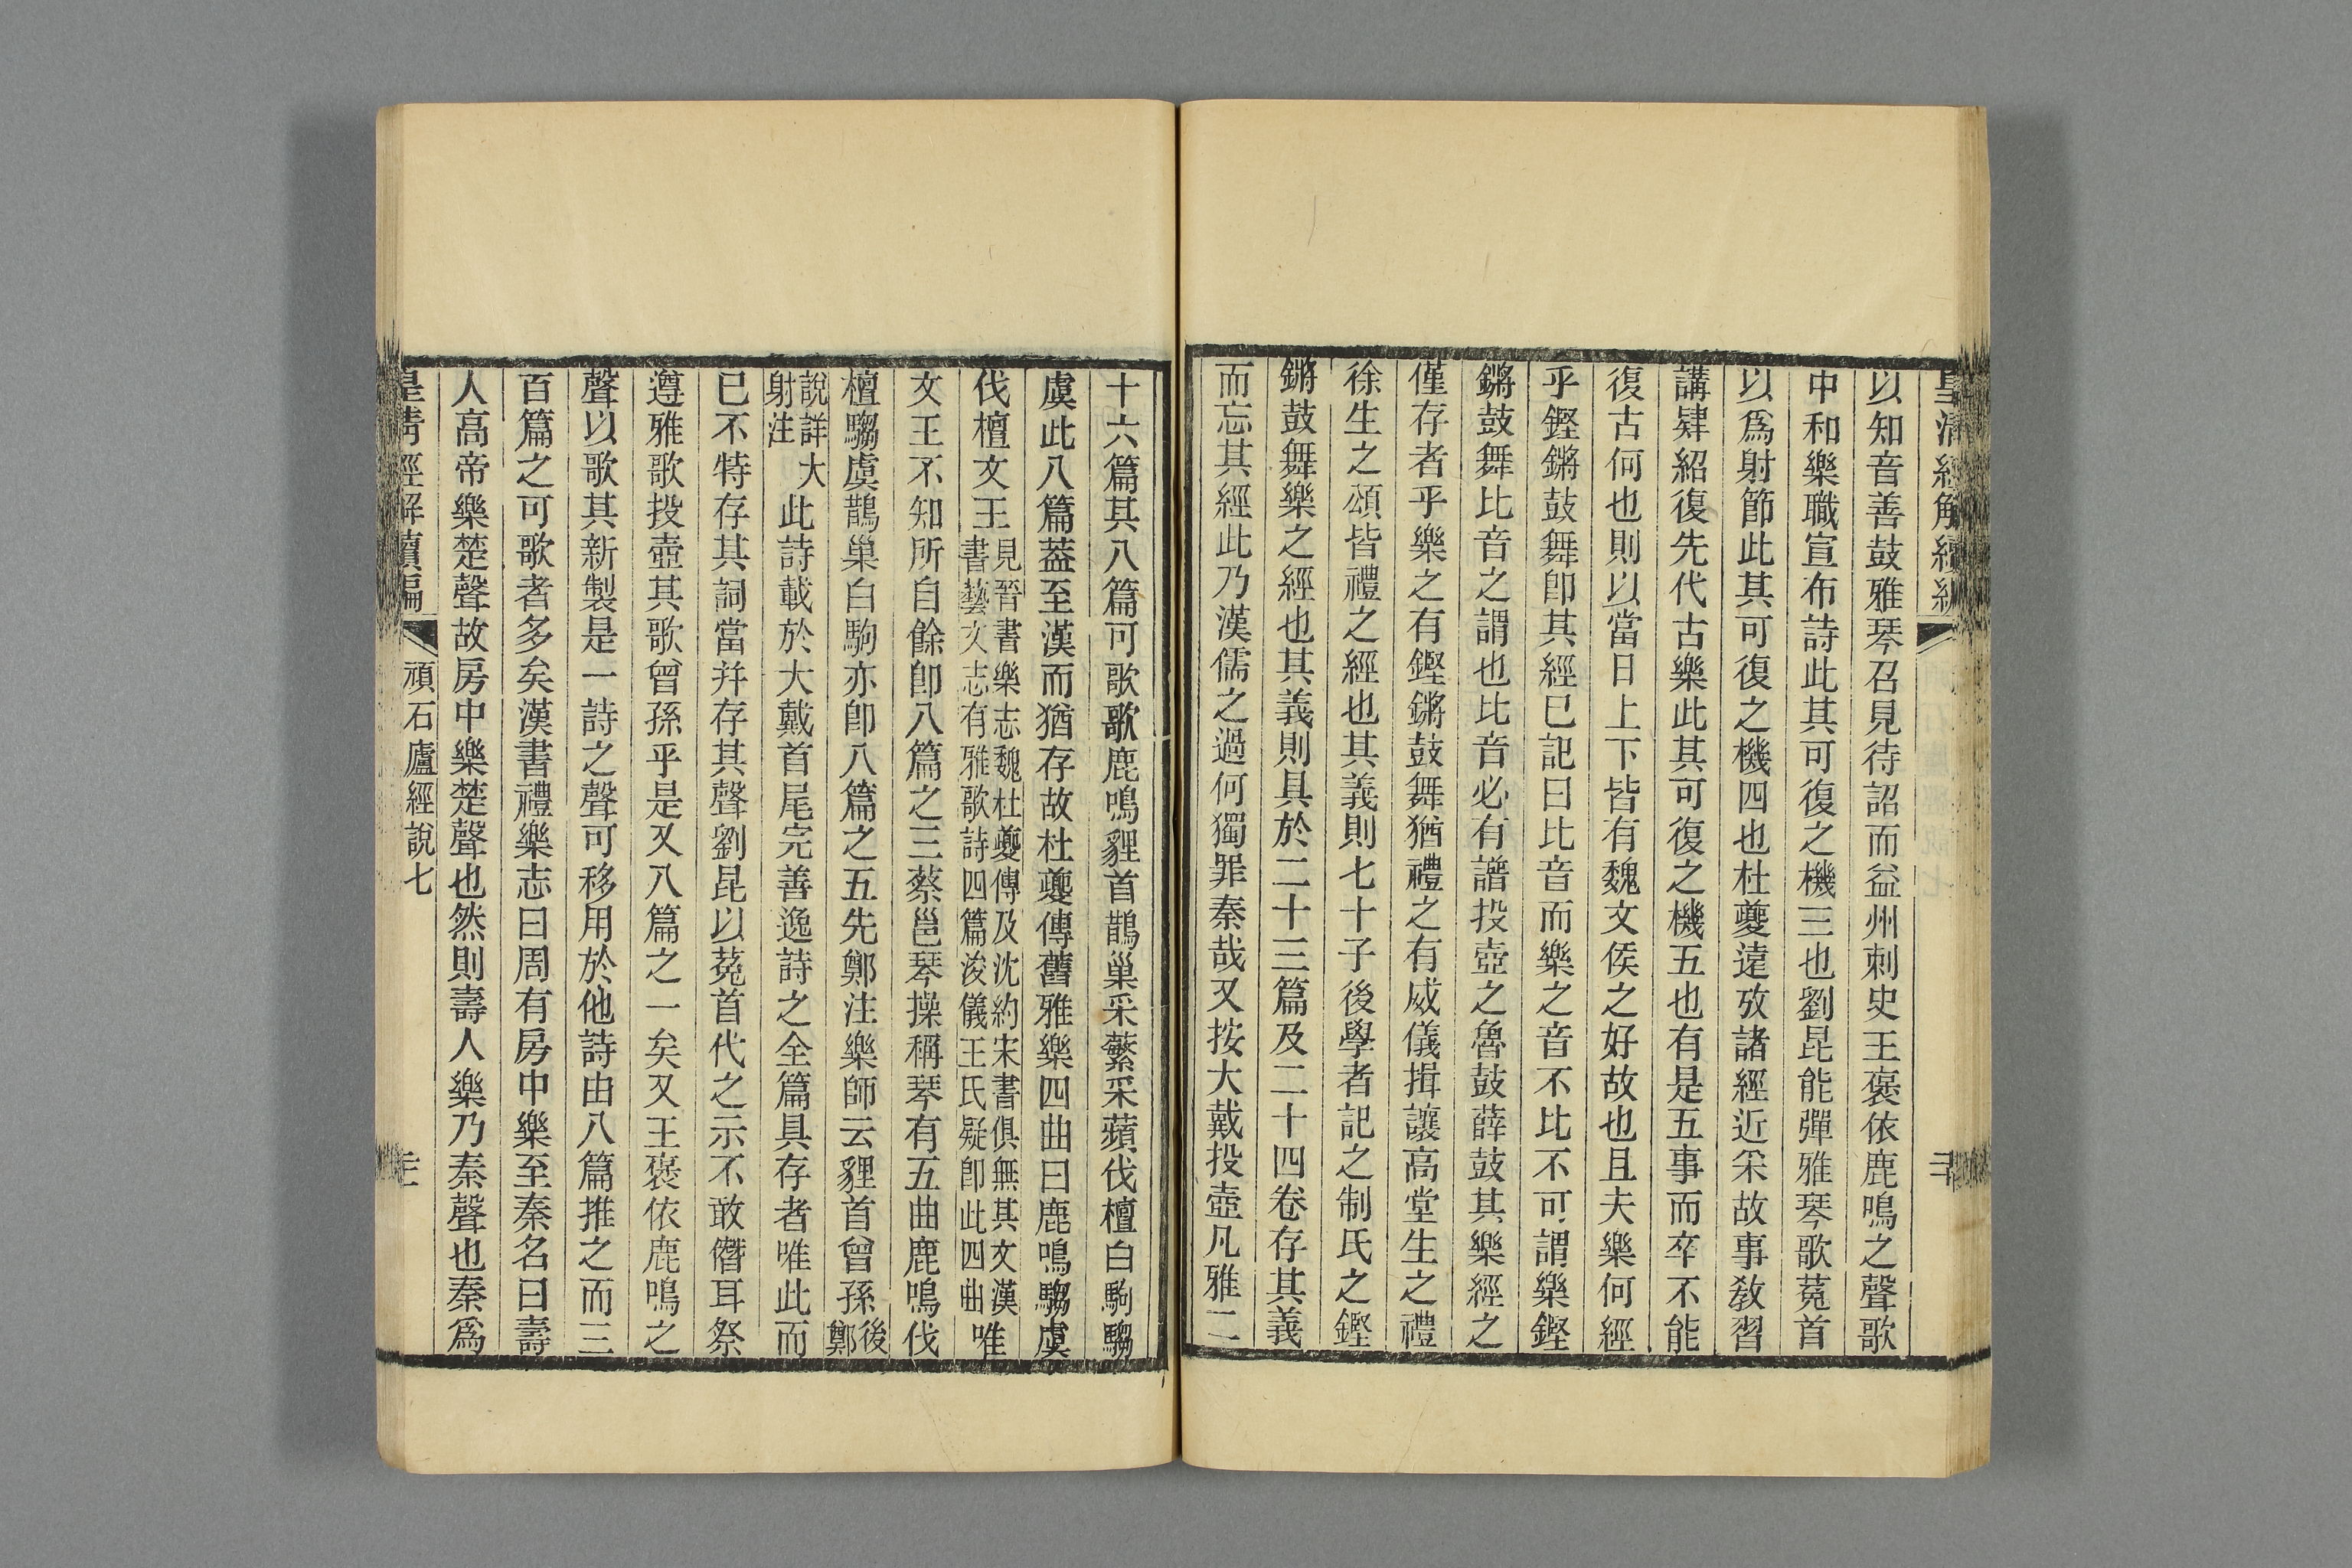 皇清經解續編
二十
以知音善鼓雅琴召見待詔而益州刺史王褒依鹿鳴之聲歌
中和樂職宣布詩此其可復之機三也劉昆能彈雅琴歌菟首
以爲射節此其可復之機四也杜夔遠攷諸經近采故事敎習
講肄紹復先代古樂此其可復之機五也有是五事而卒不能
復古何也則以當日上下皆有魏文侯之好故也且夫樂何經
乎鏗鏘鼓舞卽其經已記曰比音而樂之音不比不可謂樂鏗
鏘鼓舞比音之謂也比音必有譜投壺之魯鼓薛鼓其樂經之
僅存者乎樂之有鏗鏘鼓舞猶禮之有威儀揖讓高堂生之禮
徐生之頌皆禮之經也其義則七十子後學者記之制氏之鏗
鏘鼓舞樂之經也其義則具於二十三篇及二十四卷存其義
而忘其經此乃漢儒之過何獨罪秦哉又按大戴投壺凡雅二
十六篇其八篇可歌歌鹿鳴貍首鵲巢采蘩采蘋伐檀白駒騶
虞此八篇葢至漢而猶存故杜夔傳舊雅樂四曲曰鹿鳴騶虞
伐檀文王見晉書樂志魏杜夔傳及沈約宋書俱無其文漢
書藝文志有雅歌詩四篇浚儀王氏疑卽此四曲唯
文王不知所自餘卽八篇之三蔡邕琴操稱琴有五曲鹿鳴伐
檀騶虞鵲巢白駒亦卽八篇之五先鄭注樂師云貍首曾孫後
鄭
說詳大
射注此詩載於大戴首尾完善逸詩之全篇具存者唯此而
已不特存其詞當幷存其聲劉昆以菟首代之示不敢僭耳祭
遵雅歌投壺其歌曾孫乎是又八篇之一矣又王褒依鹿鳴之
聲以歌其新製是一詩之聲可移用於他詩由八篇推之而三
百篇之可歌者多矣漢書禮樂志曰周有房中樂至秦名曰壽
人高帝樂楚聲故房中樂楚聲也然則壽人樂乃秦聲也秦爲
皇清經解續編
頑石廬經說七